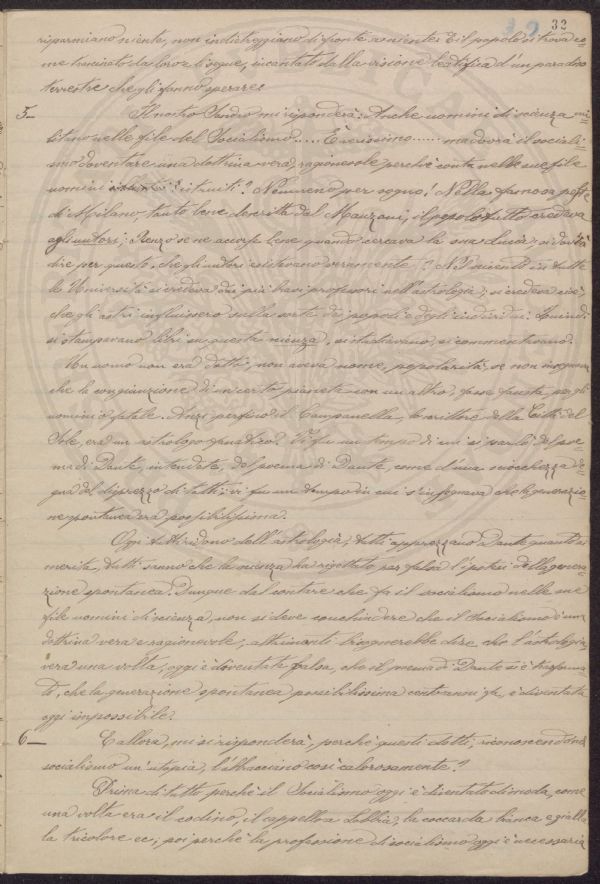 32
risparmiano niente, non indietreggiano di fronte a niente. E il popolo si trova co=
me trascinato da loro e li segue, incantato dalla visione beatifica d'un paradiso
terrestre che gli fanno sperare.
5— Il nostro Sandro mi risponderà: Anche uomini di scienza mi=
litano nelle file del Socialismo..... È verissimo...... ma dovrà il sociali=
smo doventare una dottrina vera, ragionevole perchè conta nelle sue file
uomini istruiti? Nemmeno per sogno! Nella famosa peste
di Milano, tanto bene descritta dal Manzoni, il popolo tutto credeva
agli untori; Renzo se ne accorse bene quando cercava la sua Lucia: si dovrà
dire per questo, che gli untori esistevano veramente? Nel seicento in tutte
le Università si credeva dai più bravi professori nell'astrologia; si credeva cioè,
che gli astri influissero sulla sorte dei popoli e degli individui. Quindi
si stampavano libri su questa scienza, si studiavano, si commentavano.
Un uomo non era dotto, non aveva nome, popolarità, se non insegnava
che la congiunzione di un certo pianeta con un altro, fosse fausta per gli
uomini o fatale. Anzi perfino il Campanella, lo scrittore della Città del
Sole, era un astrologo fanatico. Vi fu un tempo in cui si parlò del poe=
ma di Dante, intendate, del poema di Dante, come d'una sciocchezza de=
gna del disprezzo di tutti; vi fu un tempo in cui s'insegnava che la generazio=
ne spontanea era possibilissima.
Oggi tutti ridono dell'astrologia, tutti apprezzano Dante quanto si
merita, tutti sanno che la scienza ha rigettato per falsa l'ipotesi della genera=
zione spontanea. Dunque dal contare che fa il socialismo nelle sue
file uomini di scienza, non si deve conchiudere che il Socialismo è una
dottrina vera e ragionevole, altrimenti bisognerebbe dire, che l'astrologia,
vera una volta, oggi è diventata falsa, che il poema di Dante si è trasforma=
to, che la generazione spontanea possibilissima cent'anni fa, è diventata
oggi impossibile.
6— E allora, mi si risponderà, perchè questi dotti, riconoscendo nel
socialismo un'utopia, l'abbracciano così calorosamente?
Prima di tutto perchè il Socialismo oggi è diventato di moda, come
una volta era il codino, il cappello a la coccarda bianca e gialla
la tricolore ec; poi perchè la professione di socialismo oggi è necessaria